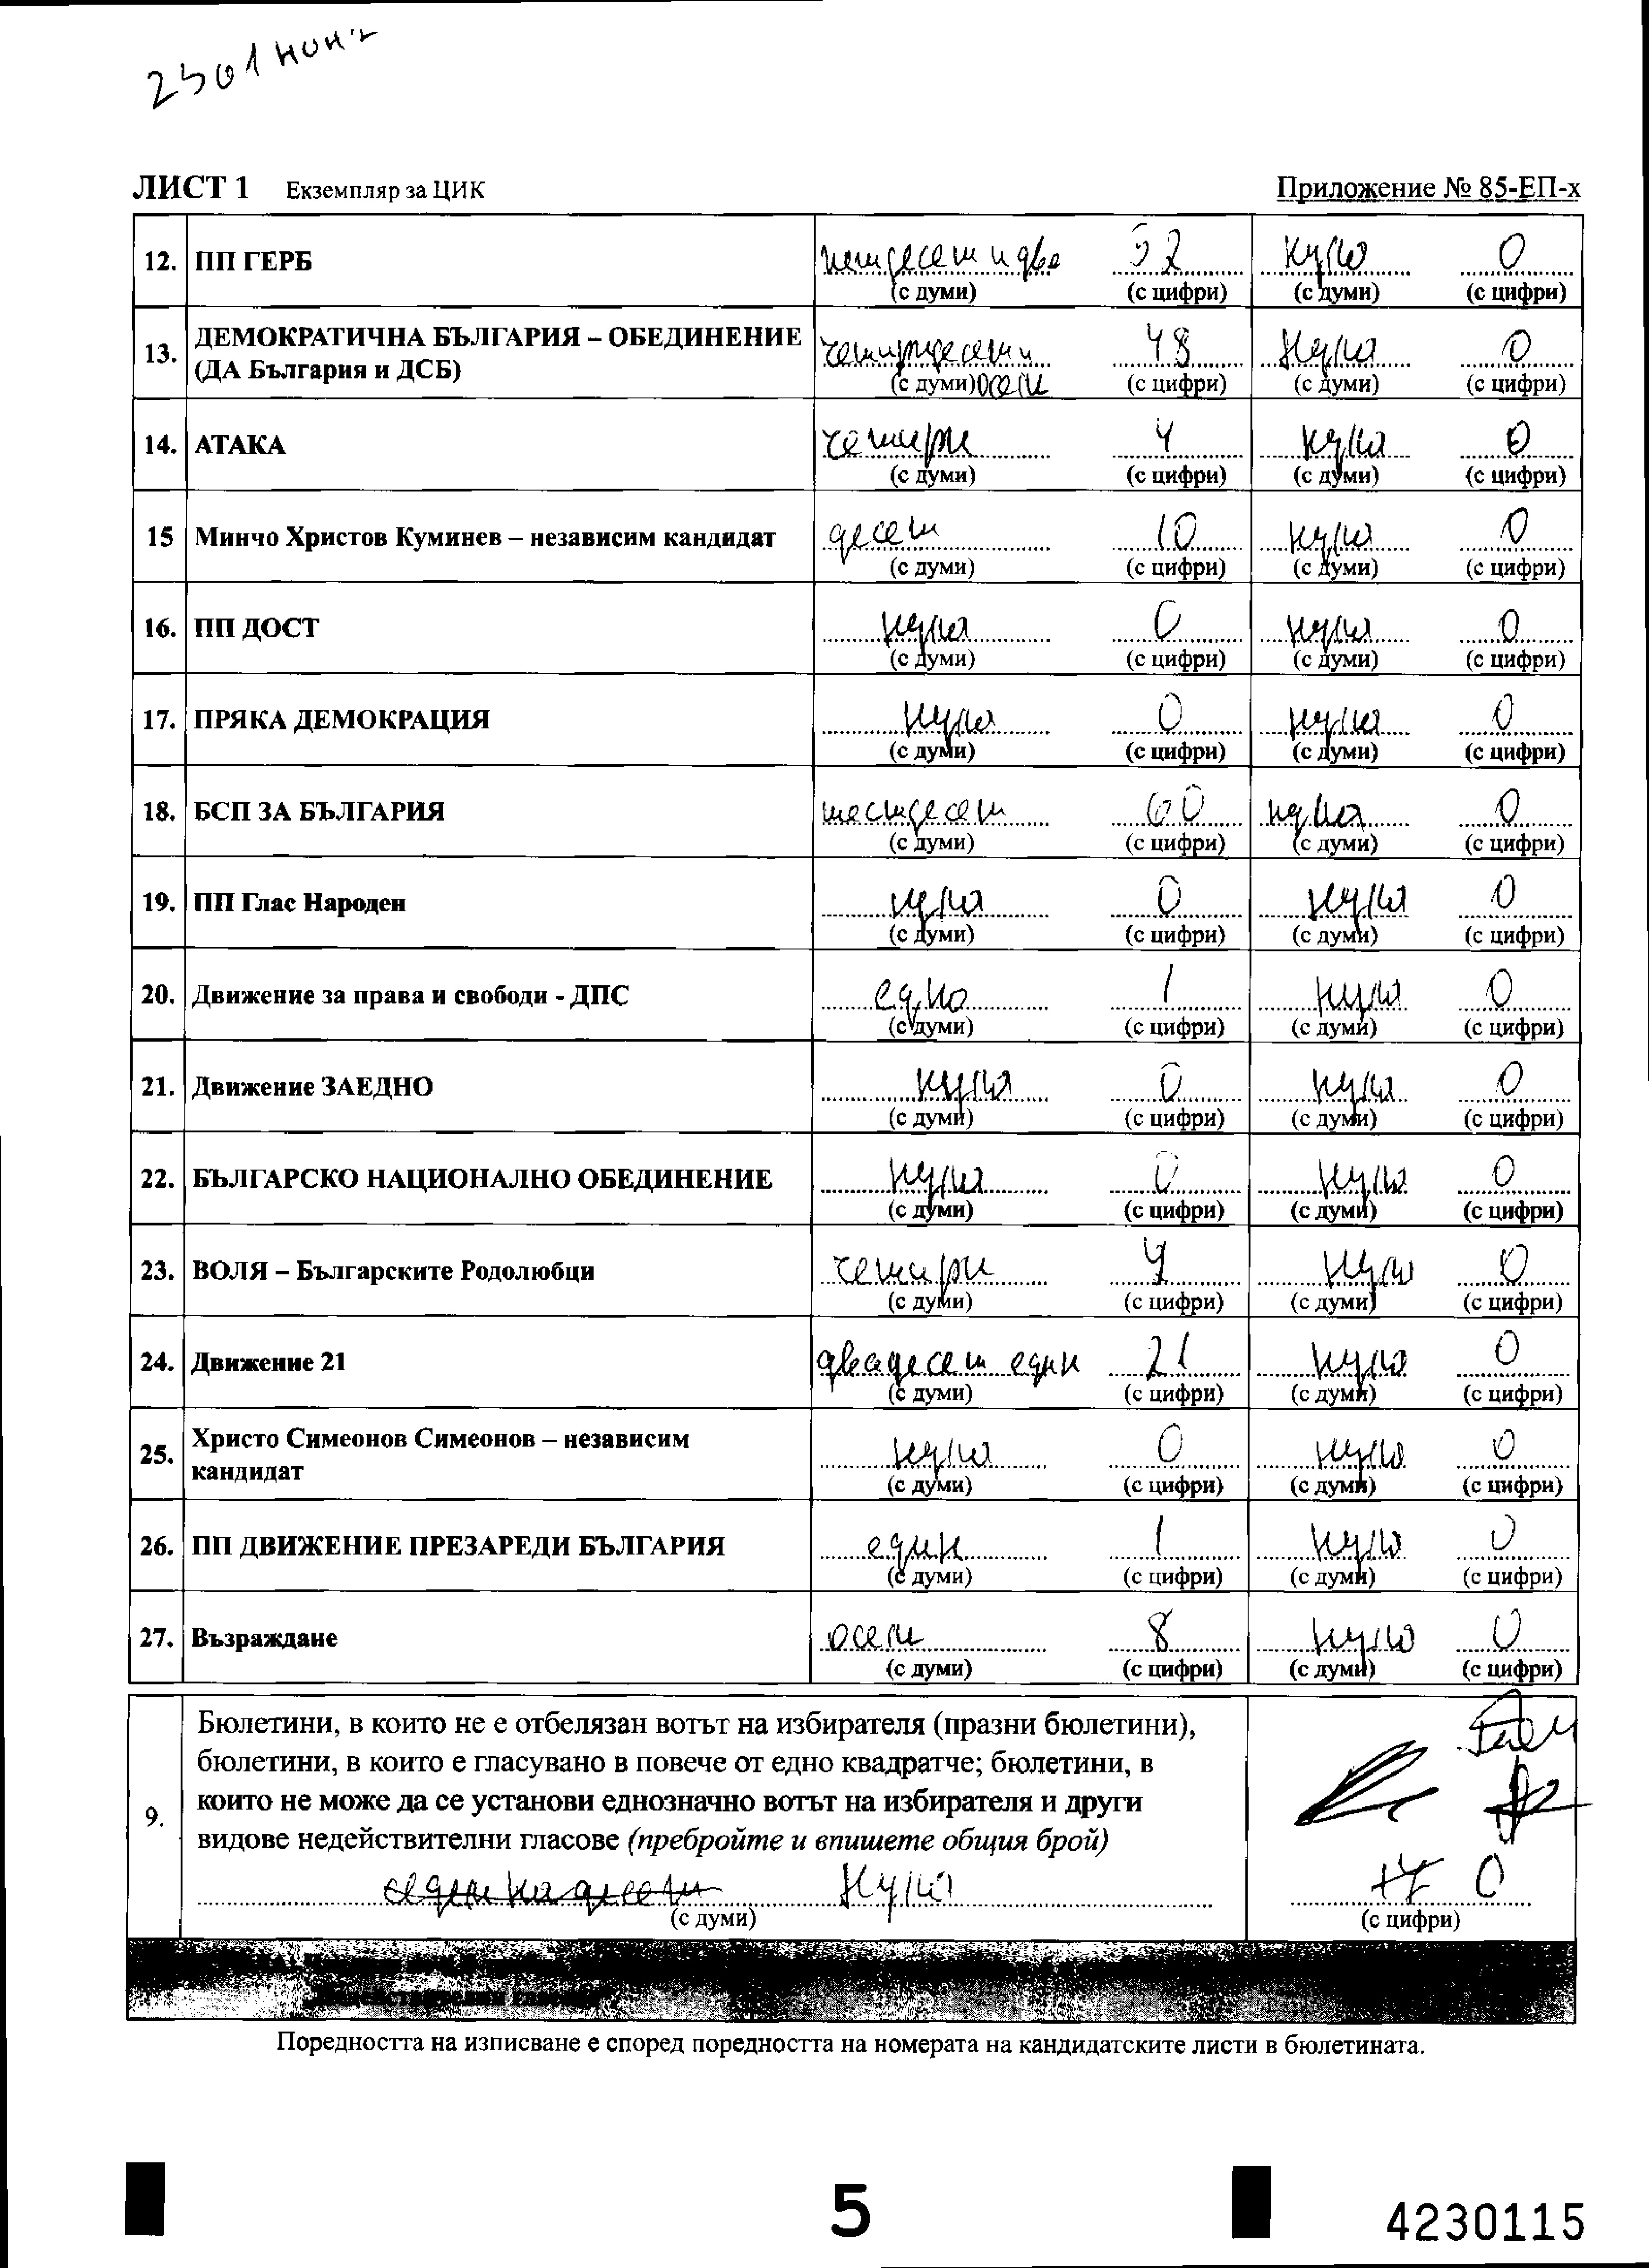 ЛИСТ 1 Екземпляр за ЦИК Приложение № 85-ЕП-х
12. ПП ГЕРБ петдесет и две 52 нула 0
(с думи) (с цифри) (с думи) (с цифри)
13. ДЕМОКРАТИЧНА БЪЛГАРИЯ – ОБЕДИНЕНИЕ
(ДА България и ДСБ) четиридесет и осем 48 нула 0
(с думи) (с цифри) (с думи) (с цифри)
14. АТАКА четири 4 нула 0
(с думи) (с цифри) (с думи) (с цифри)
15 Минчо Христов Куминев – независим кандидат десет 10 нула 0
(с думи) (с цифри) (с думи) (с цифри)
16. ПП ДОСТ нула 0 нула 0
(с думи) (с цифри) (с думи) (с цифри)
17. ПРЯКА ДЕМОКРАЦИЯ нула 0 нула 0
(с думи) (с цифри) (с думи) (с цифри)
18. БСП ЗА БЪЛГАРИЯ шестдесет 60 нула 0
(с думи) (с цифри) (с думи) (с цифри)
19. ПП Глас Народен нула 0 нула 0
(с думи) (с цифри) (с думи) (с цифри)
20. Движение за права и свободи - ДПС едно 1 нула 0
(с думи) (с цифри) (с думи) (с цифри)
21. Движение ЗАЕДНО нула 0 нула 0
(с думи) (с цифри) (с думи) (с цифри)
22. БЪЛГАРСКО НАЦИОНАЛНО ОБЕДИНЕНИЕ нула 0 нула 0
(с думи) (с цифри) (с думи) (с цифри)
23. ВОЛЯ – Българските Родолюбци четири 4 нула 0
(с думи) (с цифри) (с думи) (с цифри)
24. Движение 21 двадесет един 21 нула 0
(с думи) (с цифри) (с думи) (с цифри)
25. Христо Симеонов Симеонов – независим
кандидат нула 0 нула 0
(с думи) (с цифри) (с думи) (с цифри)
26. ПП ДВИЖЕНИЕ ПРЕЗАРЕДИ БЪЛГАРИЯ един 1 нула 0
(с думи) (с цифри) (с думи) (с цифри)
27. Възраждане осем 8 нула 0
(с думи) (с цифри) (с думи) (с цифри)
9. Бюлетини, в които не е отбелязан вотът на избирателя (празни бюлетини),
бюлетини, в които е гласувано в повече от едно квадратче; бюлетини, в
които не може да се установи еднозначно вотът на избирателя и други
видове недействителни гласове (пребройте и впишете общия брой)
седемнадесет нула 17 0
(с думи) (с цифри)
Поредността на изписване е според поредността на номерата на кандидатските листи в бюлетината.
5
4230115